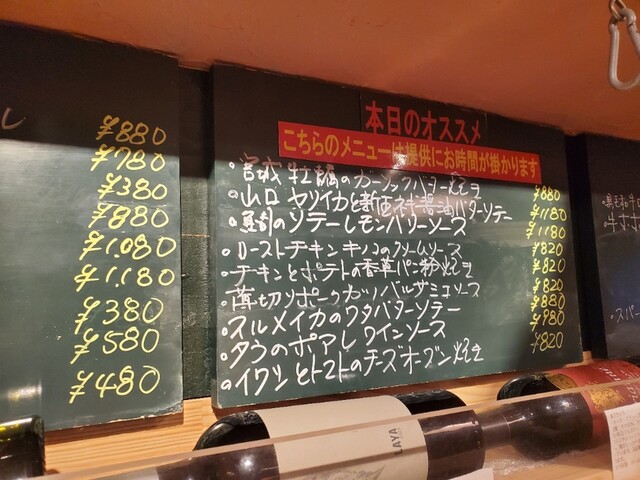 し
¥880
¥780
¥380
¥880
¥1.080
¥1.180
¥380
¥580
¥480
本日のオススメ
こちらのメニューは提供にお時間が掛かります
・宮城 牡蠣のガーリックバター焼き ¥880
・山口 ヤリイカと 醤油バターソテー ¥1180
・真鯛のソテーレモンバターソース ¥1180
・ローストチキン キノコのクリームソース ¥820
・チキンとポテトの香草パン粉焼き ¥820
・薄切りポークカツバルサミコソース ¥820
・スルメイカのワタバターソテー ¥880
・タラのポアレ 白ワインソース ¥980
・イワシとトマトのチーズオーブン焼き ¥820
・黒
・牛ホホ
・スパー
LAYA